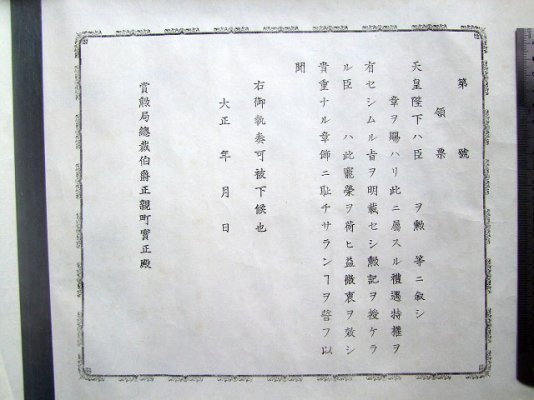 第　號
領票
天皇陛下ハ臣　ヲ勲　等ニ叙シ
章ヲ賜ハリ此ニ屬スル禮遇特權ヲ
有セシムル旨ヲ明載セシ勲記ヲ授ケラ
ル臣　ハ此寵榮ヲ荷ヒ益微衷ヲ效シ
貴重ナル章飾ニ耻チサランヿヲ誓フ以
聞
右御執奏可被下候也
大正　年　月　日
賞勲局總裁伯爵正親町實正殿